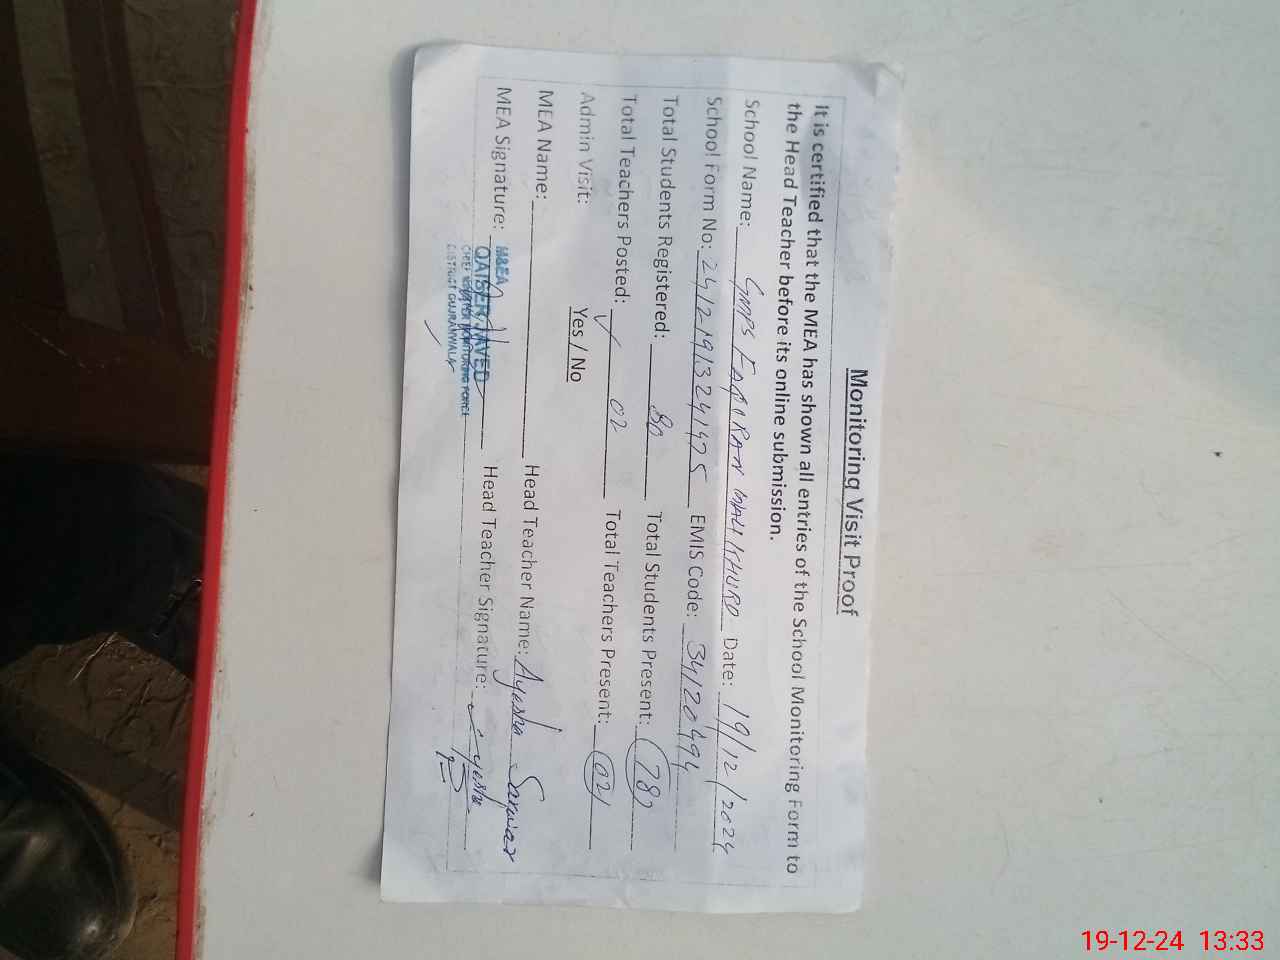 Monitoring Visit Proof
It is certified that the MEA has shown all entries of the School Monitoring Form to
the Head Teacher before its online submission.
School Name: GMPS WALI KHURD Date: 19/12/2024
School Form No: 24121913241475 EMIS Code: 34120494
Total Students Registered: 80 Total Students Present: 78
Total Teachers Posted: 02 Total Teachers Present: 02
Admin Visit: Yes / No
MEA Name: Head Teacher Name: Ayesha Sarwar
MEA Signature: Head Teacher Signature: Ayesha
M&EA
QAISER JAVED
CHIEF MINISTER MONITORING FORCE
DISTRICT GUJRANWALA
19-12-24 13:33